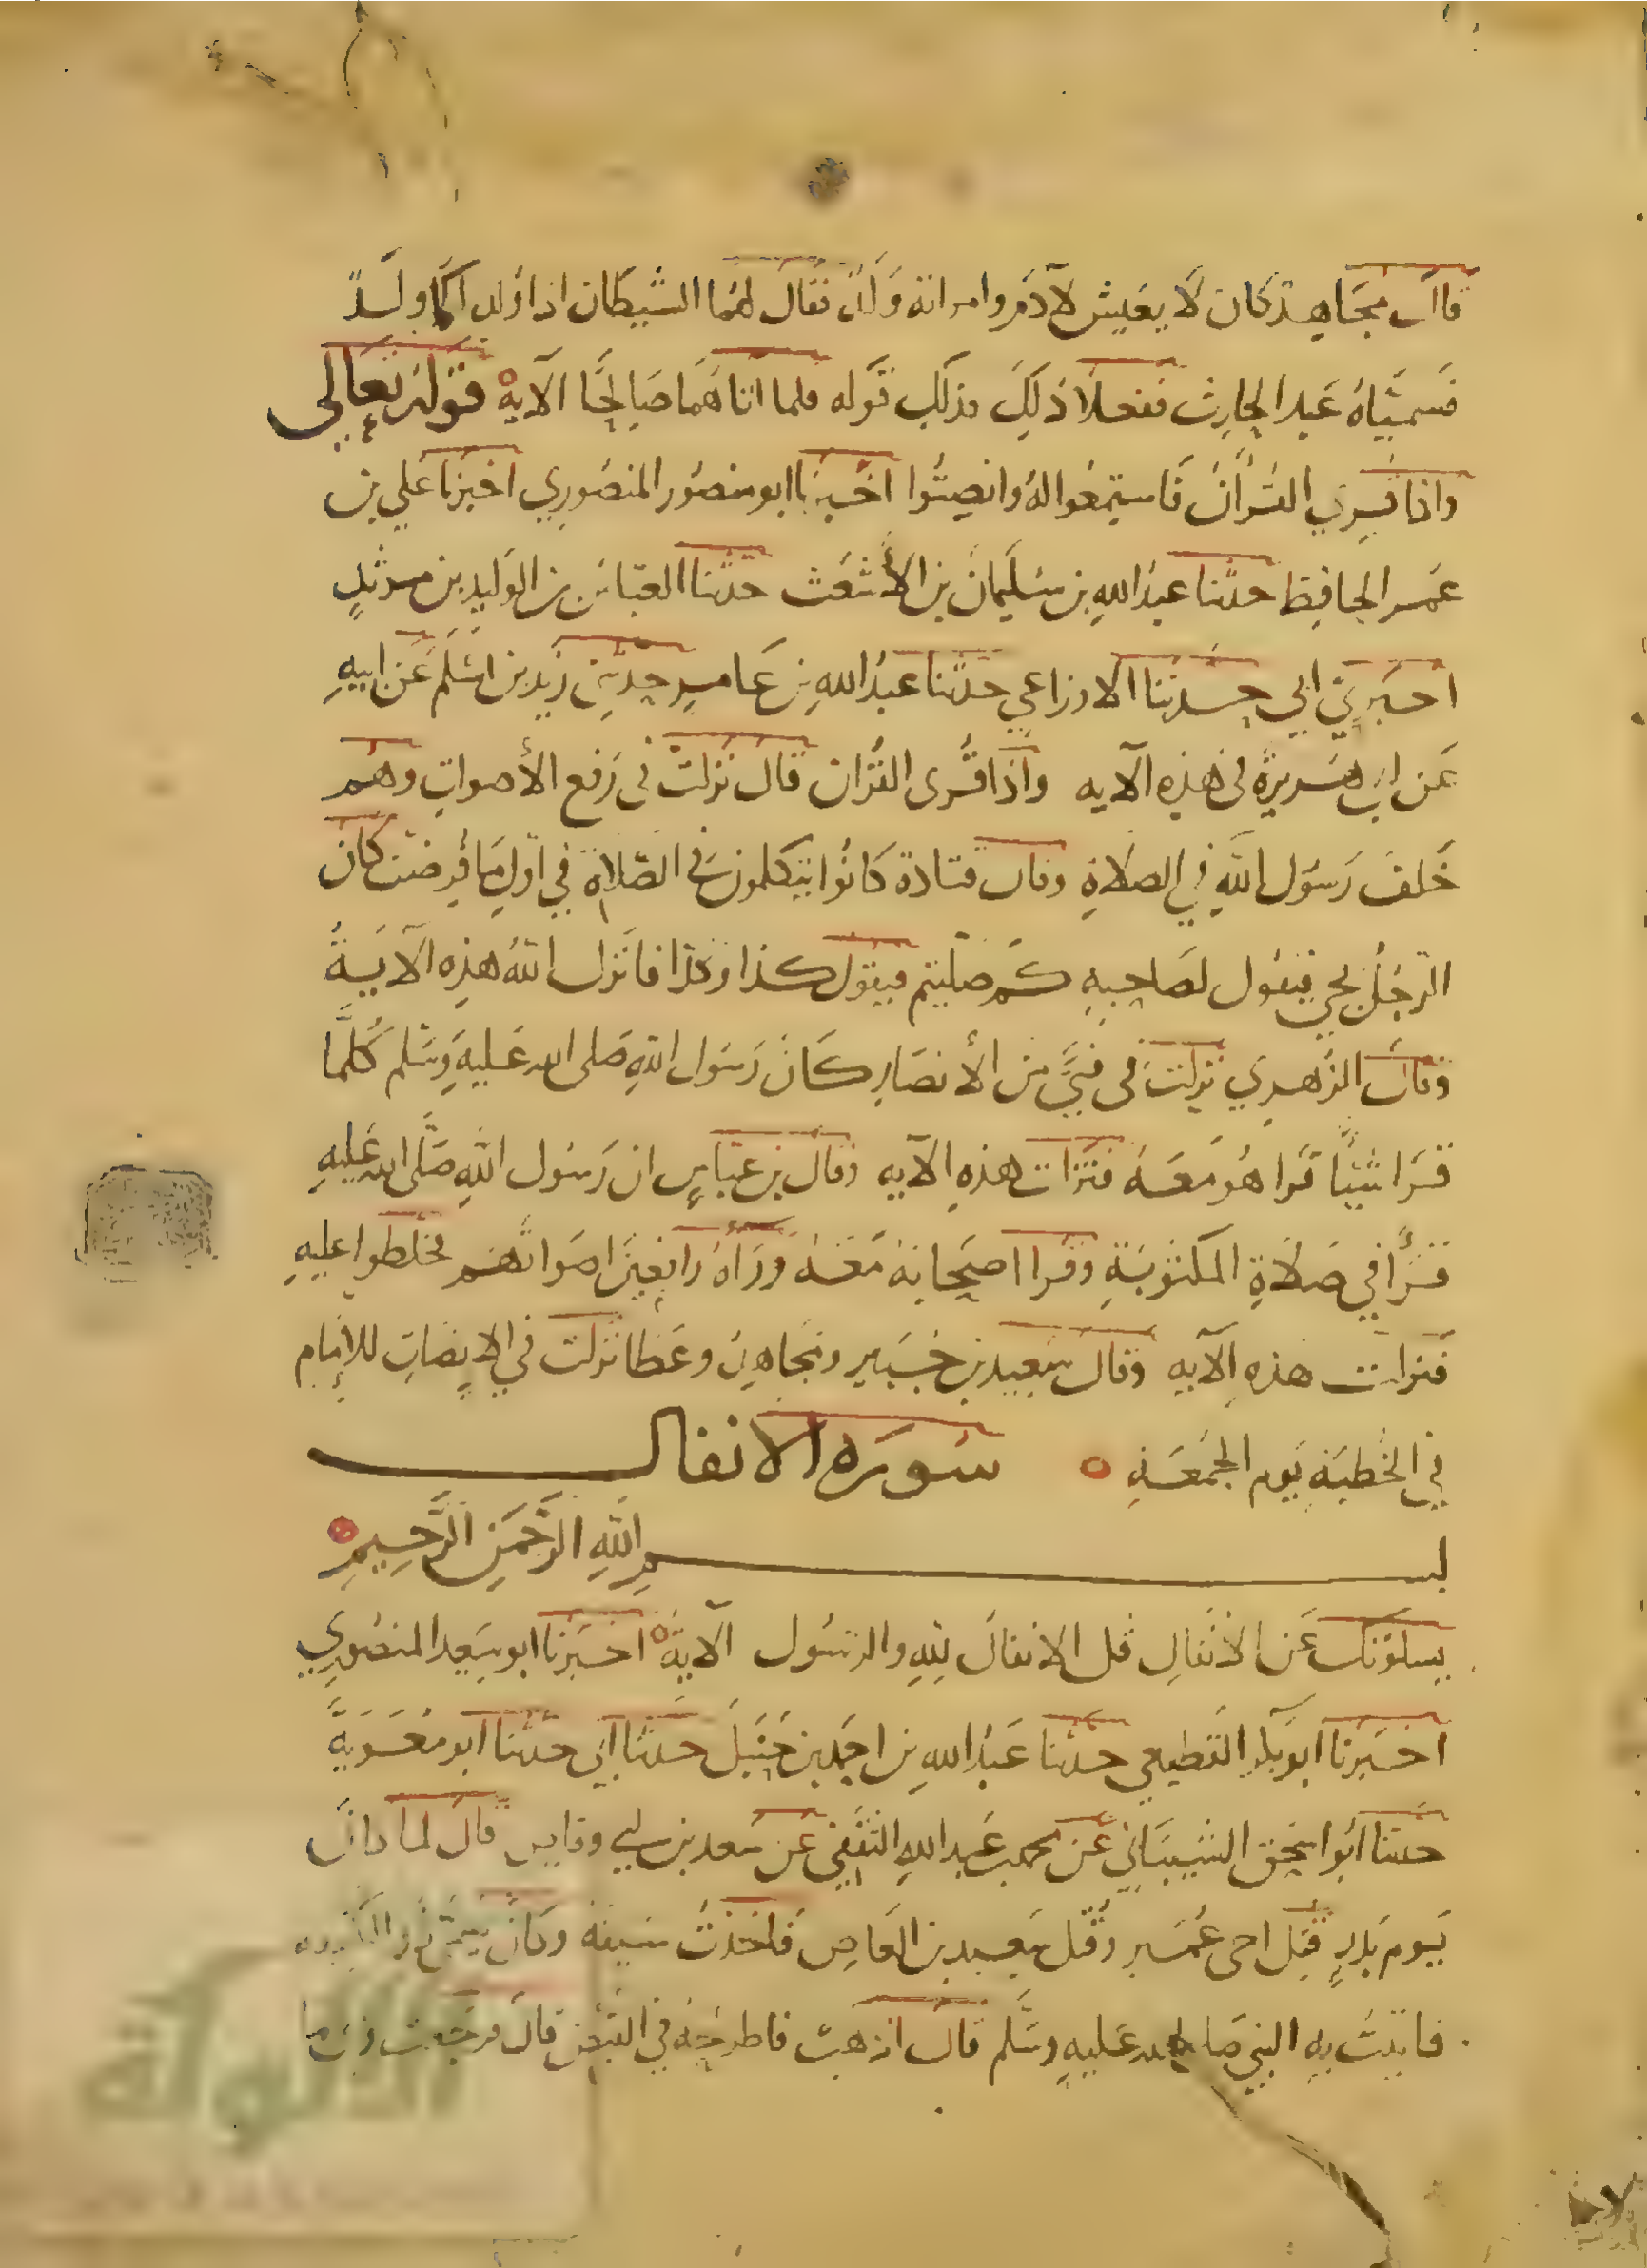 قال مجاهد كان لا يعيش لادم وامراته ولد فقال لهما الشيطان اذا ولد لكما ولد
فسمياه عبد الحارث ففعلا ذلك فذلك قوله فلما اتاهما صالحا الآية قوله تعالى
واذا قرئ القرآن فاستمعوا له وانصتوا اخبرنا ابو منصور المنصوري اخبرنا علي بن
عمر الحافظ حدثنا عبد الله بن سليمان بن الأشعث حدثنا العباس بن الوليد بن مزيد
اخبرني ابي حدثنا الاوزاعي حدثنا عبد الله بن عامر حدثني زيد بن اسلم عن ابيه
عن ابي هريرة في هذه الآيه واذا قرى القران قال نزلت في رفع الأصوات وهم
خلف رسول الله في الصلاة وقال قتادة كانوا يتكلمون في الصلاة في اول ما فرضت كان
الرجل يجي فيقول لصاحبه كم صليتم فيقول كذا وكذا فانزل الله هذه الآية
وقال الزهري نزلت في فتى من الأنصار كان رسول الله صلى الله عليه وسلم كلما
قرا شيئا قرا هو معه فنزلت هذه الآيه وقال بن عباس ان رسول الله صلى الله عليه
قرأ في صلاة المكتوبة وقرا اصحابه معه وراه رافعين اصواتهم فخلطوا عليه
فنزلت هذه الآيه وقال سعيد بن جبير ومجاهد وعطا نزلت في الإنصات للإمام
في الخطبة يوم الجمعة سورة الانفال
بسم الله الرحمن الرحيم
يسلونك عن الانفال قل الانفال لله والرسول الآية اخبرنا ابو سعيد المنصوري
اخبرنا ابو بكر القطيعي حدثنا عبد الله بن احمد بن حنبل حدثنا ابي حدثنا ابو معوية
حدثنا ابو اسحق الشيباني عن محمد بن عبد الله الثقفي عن سعد بن ابي وقاص قال لما كان
يوم بدر قتل اخي عمير وقتل سعيد بن العاص فاخذت سيفه وكان يسمى ذا الكتيفه
فاتيت به النبي صلى الله عليه وسلم قال اذهب فاطرحه في القبض قال فرجعت وبي ما